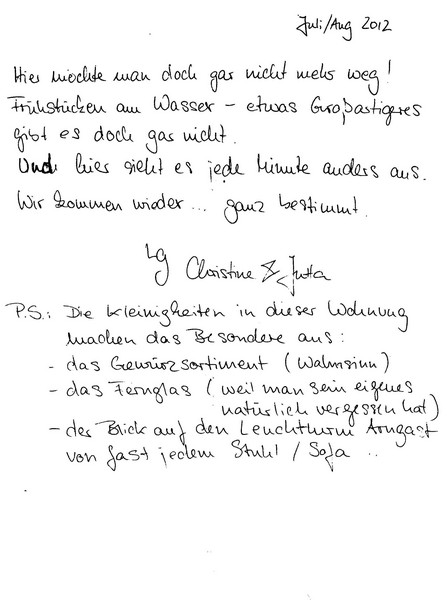 Juli/Aug 2012
Hier möchte man doch gar nicht mehr weg!
Frühstücken am Wasser – etwas Großartigeres
gibt es doch gar nicht.
Und hier sieht es jede Minute anders aus.
Wir kommen wieder... ganz bestimmt.
Lg Christine & Jutta
P.S.: Die Kleinigkeiten in dieser Wohnung
machen das Besondere aus:
- das Gewürzsortiment (Wahnsinn)
- das Fernglas (weil man sein eigenes
natürlich vergessen hat)
- der Blick auf den Leuchtturm Arngast
von fast jedem Stuhl / Sofa ..